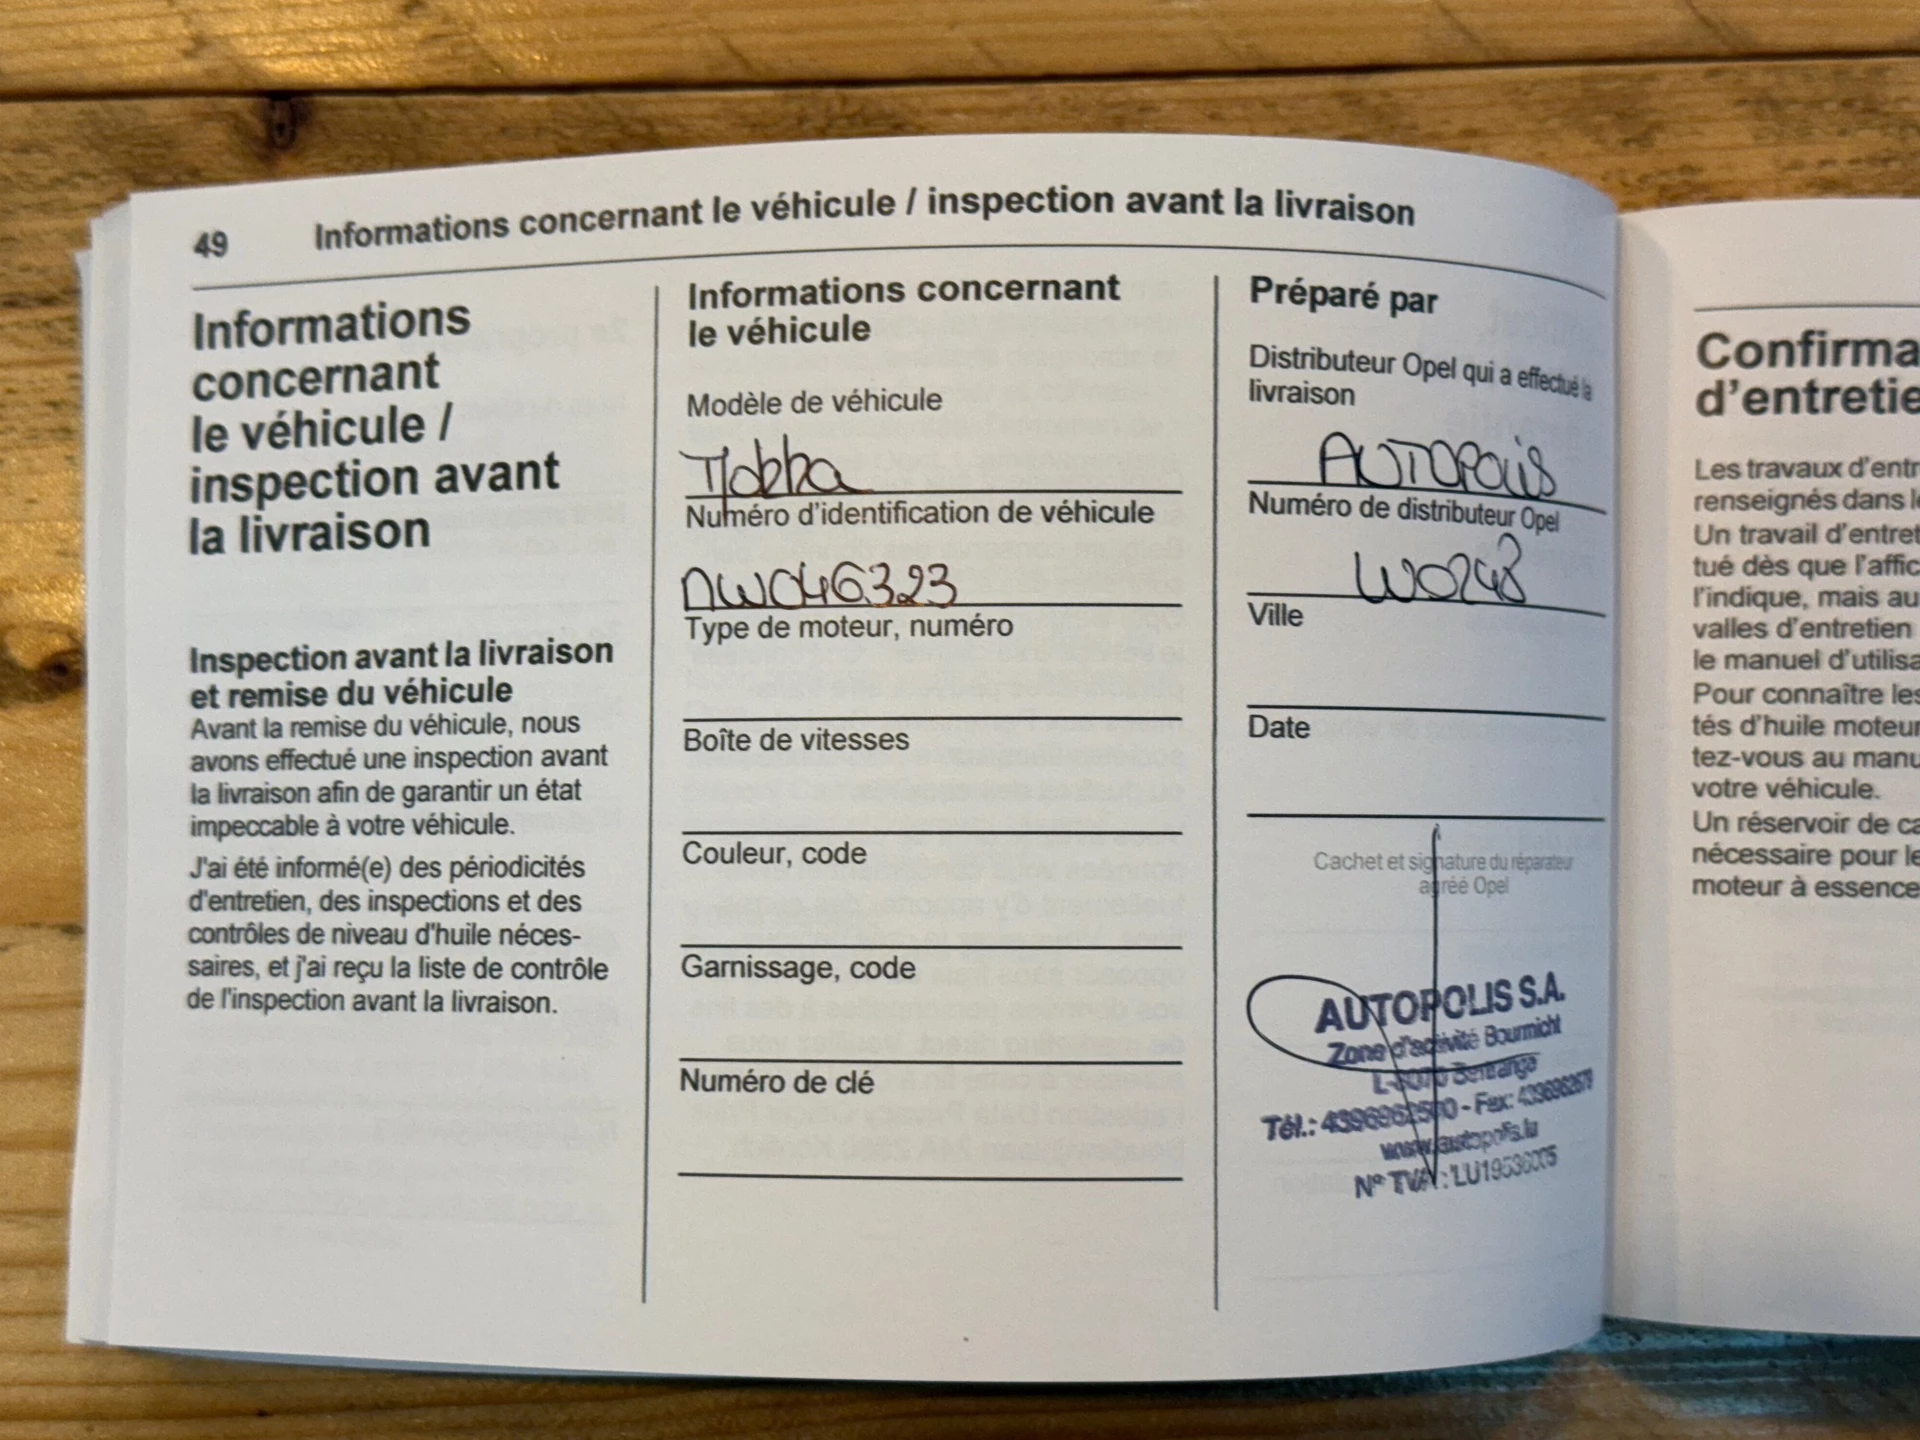 49 Informations concernant le véhicule / inspection avant la livraison
Informations
concernant
le véhicule /
inspection avant
la livraison
Inspection avant la livraison
et remise du véhicule
Avant la remise du véhicule, nous
avons effectué une inspection avant
la livraison afin de garantir un état
impeccable à votre véhicule.
J'ai été informé(e) des périodicités
d'entretien, des inspections et des
contrôles de niveau d'huile néces-
saires, et j'ai reçu la liste de contrôle
de l'inspection avant la livraison.
Informations concernant
le véhicule
Modèle de véhicule
Mokka
Numéro d'identification de véhicule
NW046323
Type de moteur, numéro
Boîte de vitesses
Couleur, code
Garnissage, code
Numéro de clé
Préparé par
Distributeur Opel qui a effectué la
livraison
AUTOPOLIS
Numéro de distributeur Opel
W0248
Ville
Date
Cachet et signature du réparateur
agréé Opel
AUTOPOLIS S.A.
Zone d'activité Bourmicht
L-8070 Bertrange
Tél.: 4396962500 - Fax: 4396962679
www.autopolis.lu
N° TVA : LU19536005
Confirma
d'entretie
Les travaux d'entr
renseignés dans le
Un travail d'entret
tué dès que l'affic
l'indique, mais au
valles d'entretien
le manuel d'utilisa
Pour connaître les
tés d'huile moteur
tez-vous au manu
votre véhicule.
Un réservoir de ca
nécessaire pour le
moteur à essence